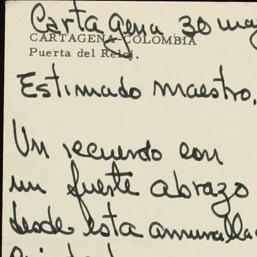 Cartagena 30 may
CARTAGENA-COLOMBIA
Puerta del Reloj.
Estimado maestro,
Un recuerdo con
un fuerte abrazo
desde esta amuralla